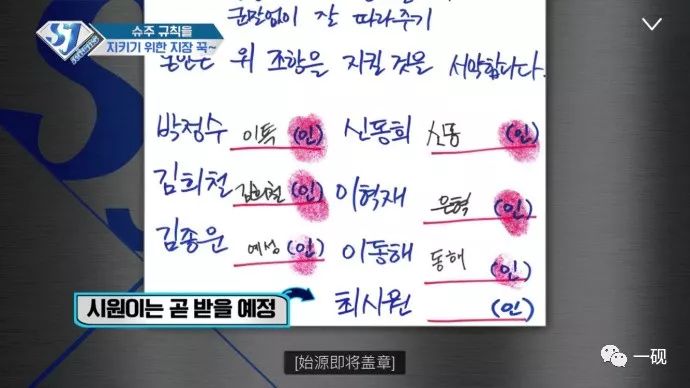 SJ
슈주 규칙을
지키기 위한 지장 꾹~
군말없이 잘 따라주기
위 조항을 지킬 것을 서약합니다.
박정수 이특 (인) 신동희 신동 (인)
김희철 김희철 (인) 이혁재 은혁 (인)
김종운 예성 (인) 이동해 동해 (인)
최시원 (인)
시원이는 곧 받을 예정
[始源即将盖章]
一砚